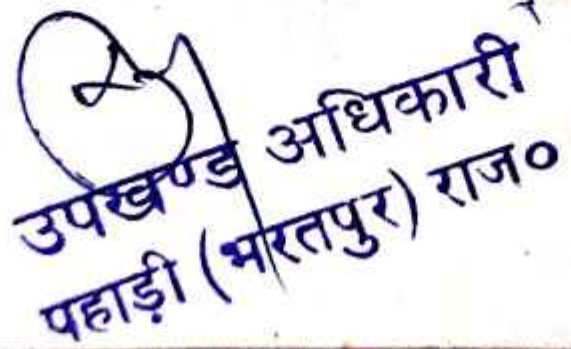 उपखण्ड अधिकारी
पहाड़ी (भरतपुर) राज०